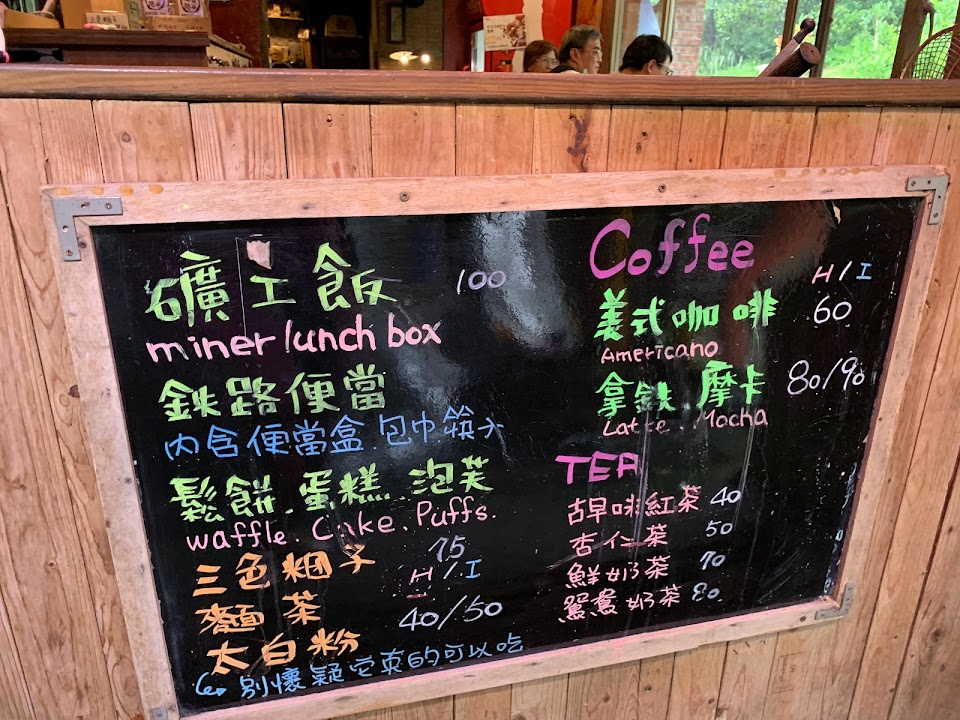 礦工飯 100
miner lunch box
鉄路便當
內含便當盒.包巾.筷子
鬆餅.蛋糕.泡芙
waffle. Cake. Puffs.
三色粿子 75
H / I
麵茶 40/50
太白粉
別懷疑它真的可以吃
Coffee
H / I
美式咖啡 60
Americano
拿鉄 摩卡 80/90
Latte. Mocha
TEA
古早味紅茶 40
杏仁茶 50
鮮奶茶 70
鴛鴦奶茶 80